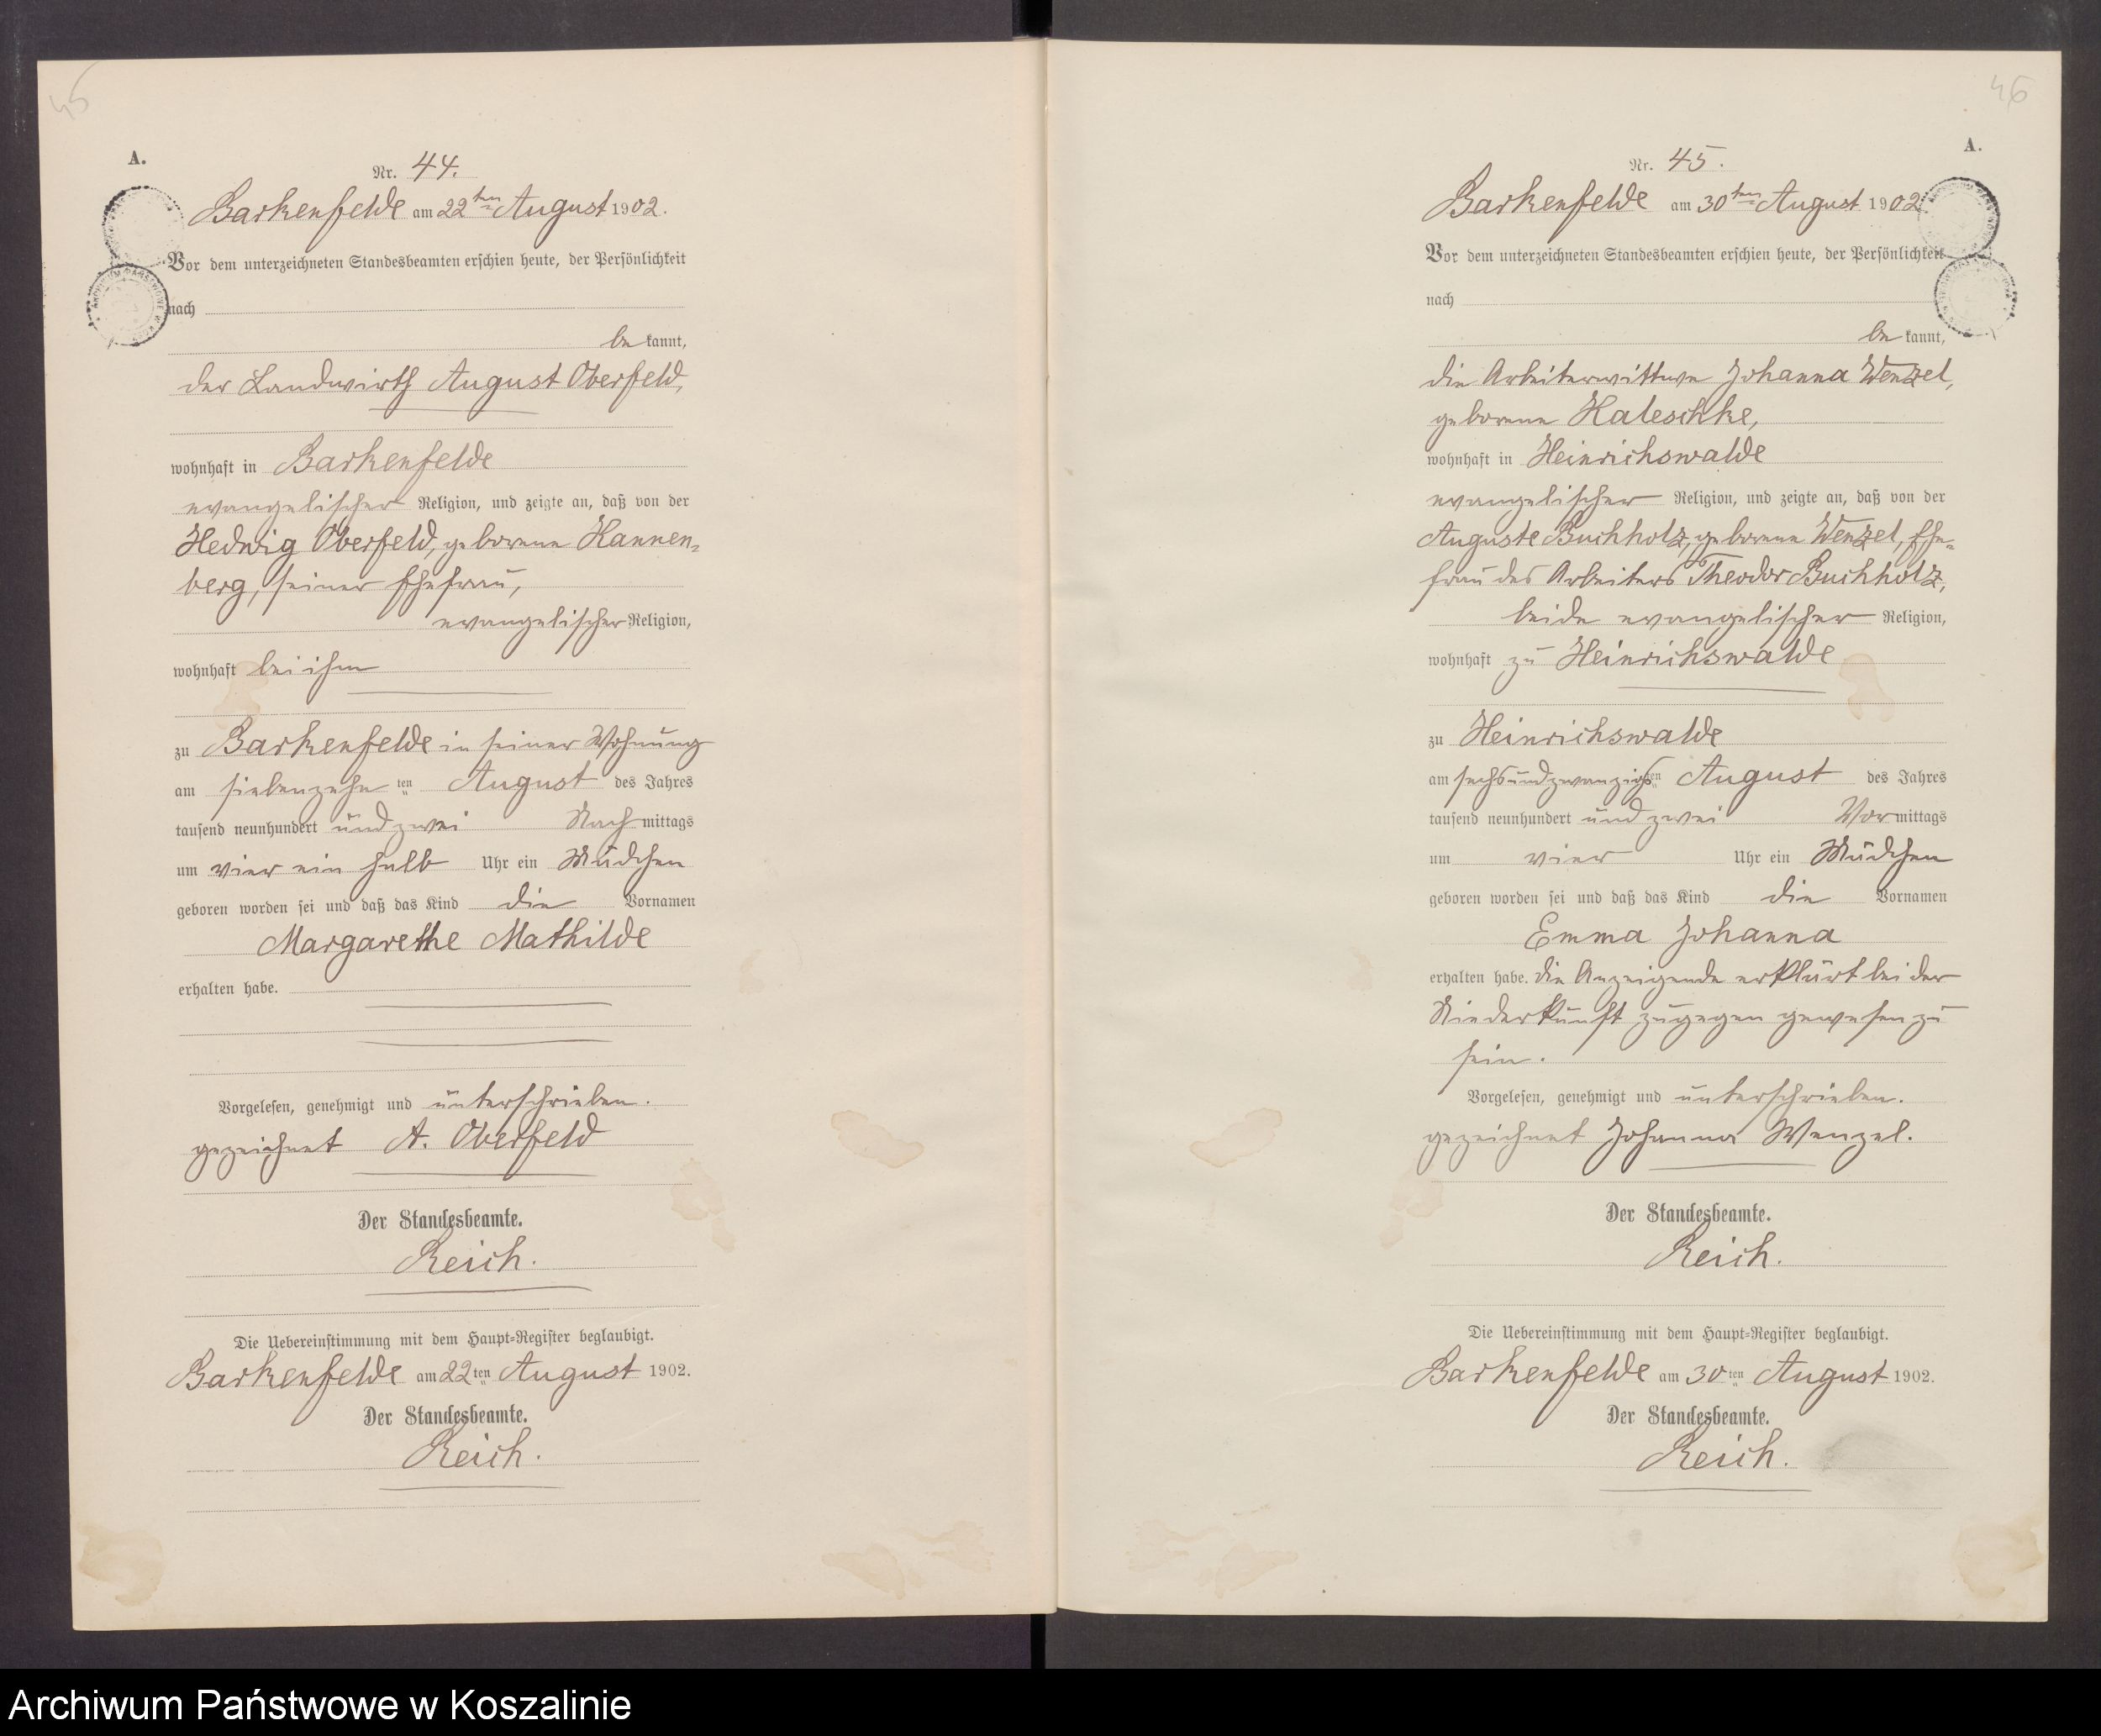 45
A.
Nr. 44.
Barkenfelde am 22ten August 1902.
Vor dem unterzeichneten Standesbeamten erschien heute, der Persönlichkeit
nach
be kannt,
der Landwirth August Oberfeld,
wohnhaft in Barkenfelde
evangelischer Religion, und zeigte an, daß von der
Hedwig Oberfeld, geborene Hannen-
berg, seiner Ehefrau,
evangelischer Religion,
wohnhaft bei ihm
zu Barkenfelde in seiner Wohnung
am siebenzehn ten August des Jahres
tausend neunhundert und zwei Nach mittags
um vier ein halb Uhr ein Mädchen
geboren worden sei und daß das Kind die Vornamen
Margarethe Mathilde
erhalten habe.
Vorgelesen, genehmigt und unterschrieben.
gezeichnet A. Oberfeld
Der Standesbeamte.
Reich.
Die Uebereinstimmung mit dem Haupt-Register beglaubigt.
Barkenfelde am 22ten August 1902.
Der Standesbeamte.
Reich.
46
A.
Nr. 45.
Barkenfelde am 30ten August 1902
Vor dem unterzeichneten Standesbeamten erschien heute, der Persönlichkeit
nach
be kannt,
die Arbeiterwittwe Johanna Wenzel,
geborene Haleschke,
wohnhaft in Heinrichswalde
evangelischer Religion, und zeigte an, daß von der
Auguste Buchholz, geborene Wenzel, Ehe-
frau des Arbeiters Theodor Buchholz,
beide evangelischer Religion,
wohnhaft zu Heinrichswalde
zu Heinrichswalde
am sechsundzwanzigsten August des Jahres
tausend neunhundert und zwei Vor mittags
um vier Uhr ein Mädchen
geboren worden sei und daß das Kind die Vornamen
Emma Johanna
erhalten habe. Die Anzeigende erklärt bei der
Niederkunft zugegen gewesen zu
sein.
Vorgelesen, genehmigt und unterschrieben.
gezeichnet Johanna Wenzel.
Der Standesbeamte.
Reich.
Die Uebereinstimmung mit dem Haupt-Register beglaubigt.
Barkenfelde am 30ten August 1902.
Der Standesbeamte.
Reich.
Archiwum Państwowe w Koszalinie